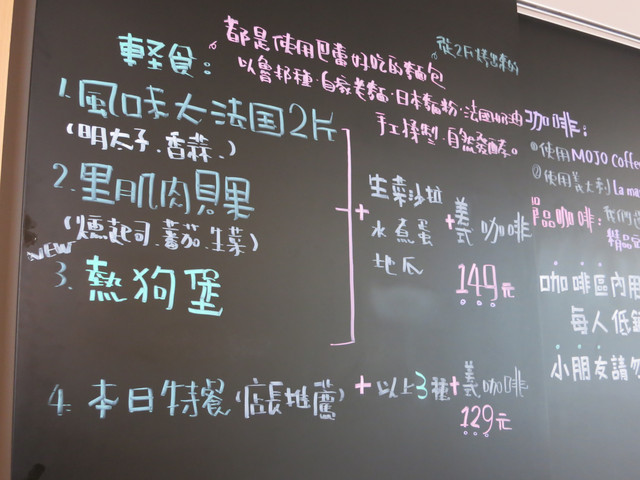 輕食：
都是使用巴蕾好吃的麵包
以魯邦種．自家老麵．日本麵粉．法國奶油
手工揉製．自然發酵。
1.風味大法国2片
(明太子.香蒜.)
2.里肌肉貝果
(燻起司.蕃茄.生菜)
NEW
3.熱狗堡
+生菜沙拉
水煮蛋
地瓜
+義式咖啡
149元
4.本日特餐(店長推薦)+以上3種+義式咖啡
129元
咖啡：
①使用MOJO Coffe
②使用義大利 La ma
品咖啡：我們
咖啡區內用
每人低
小朋友請勿